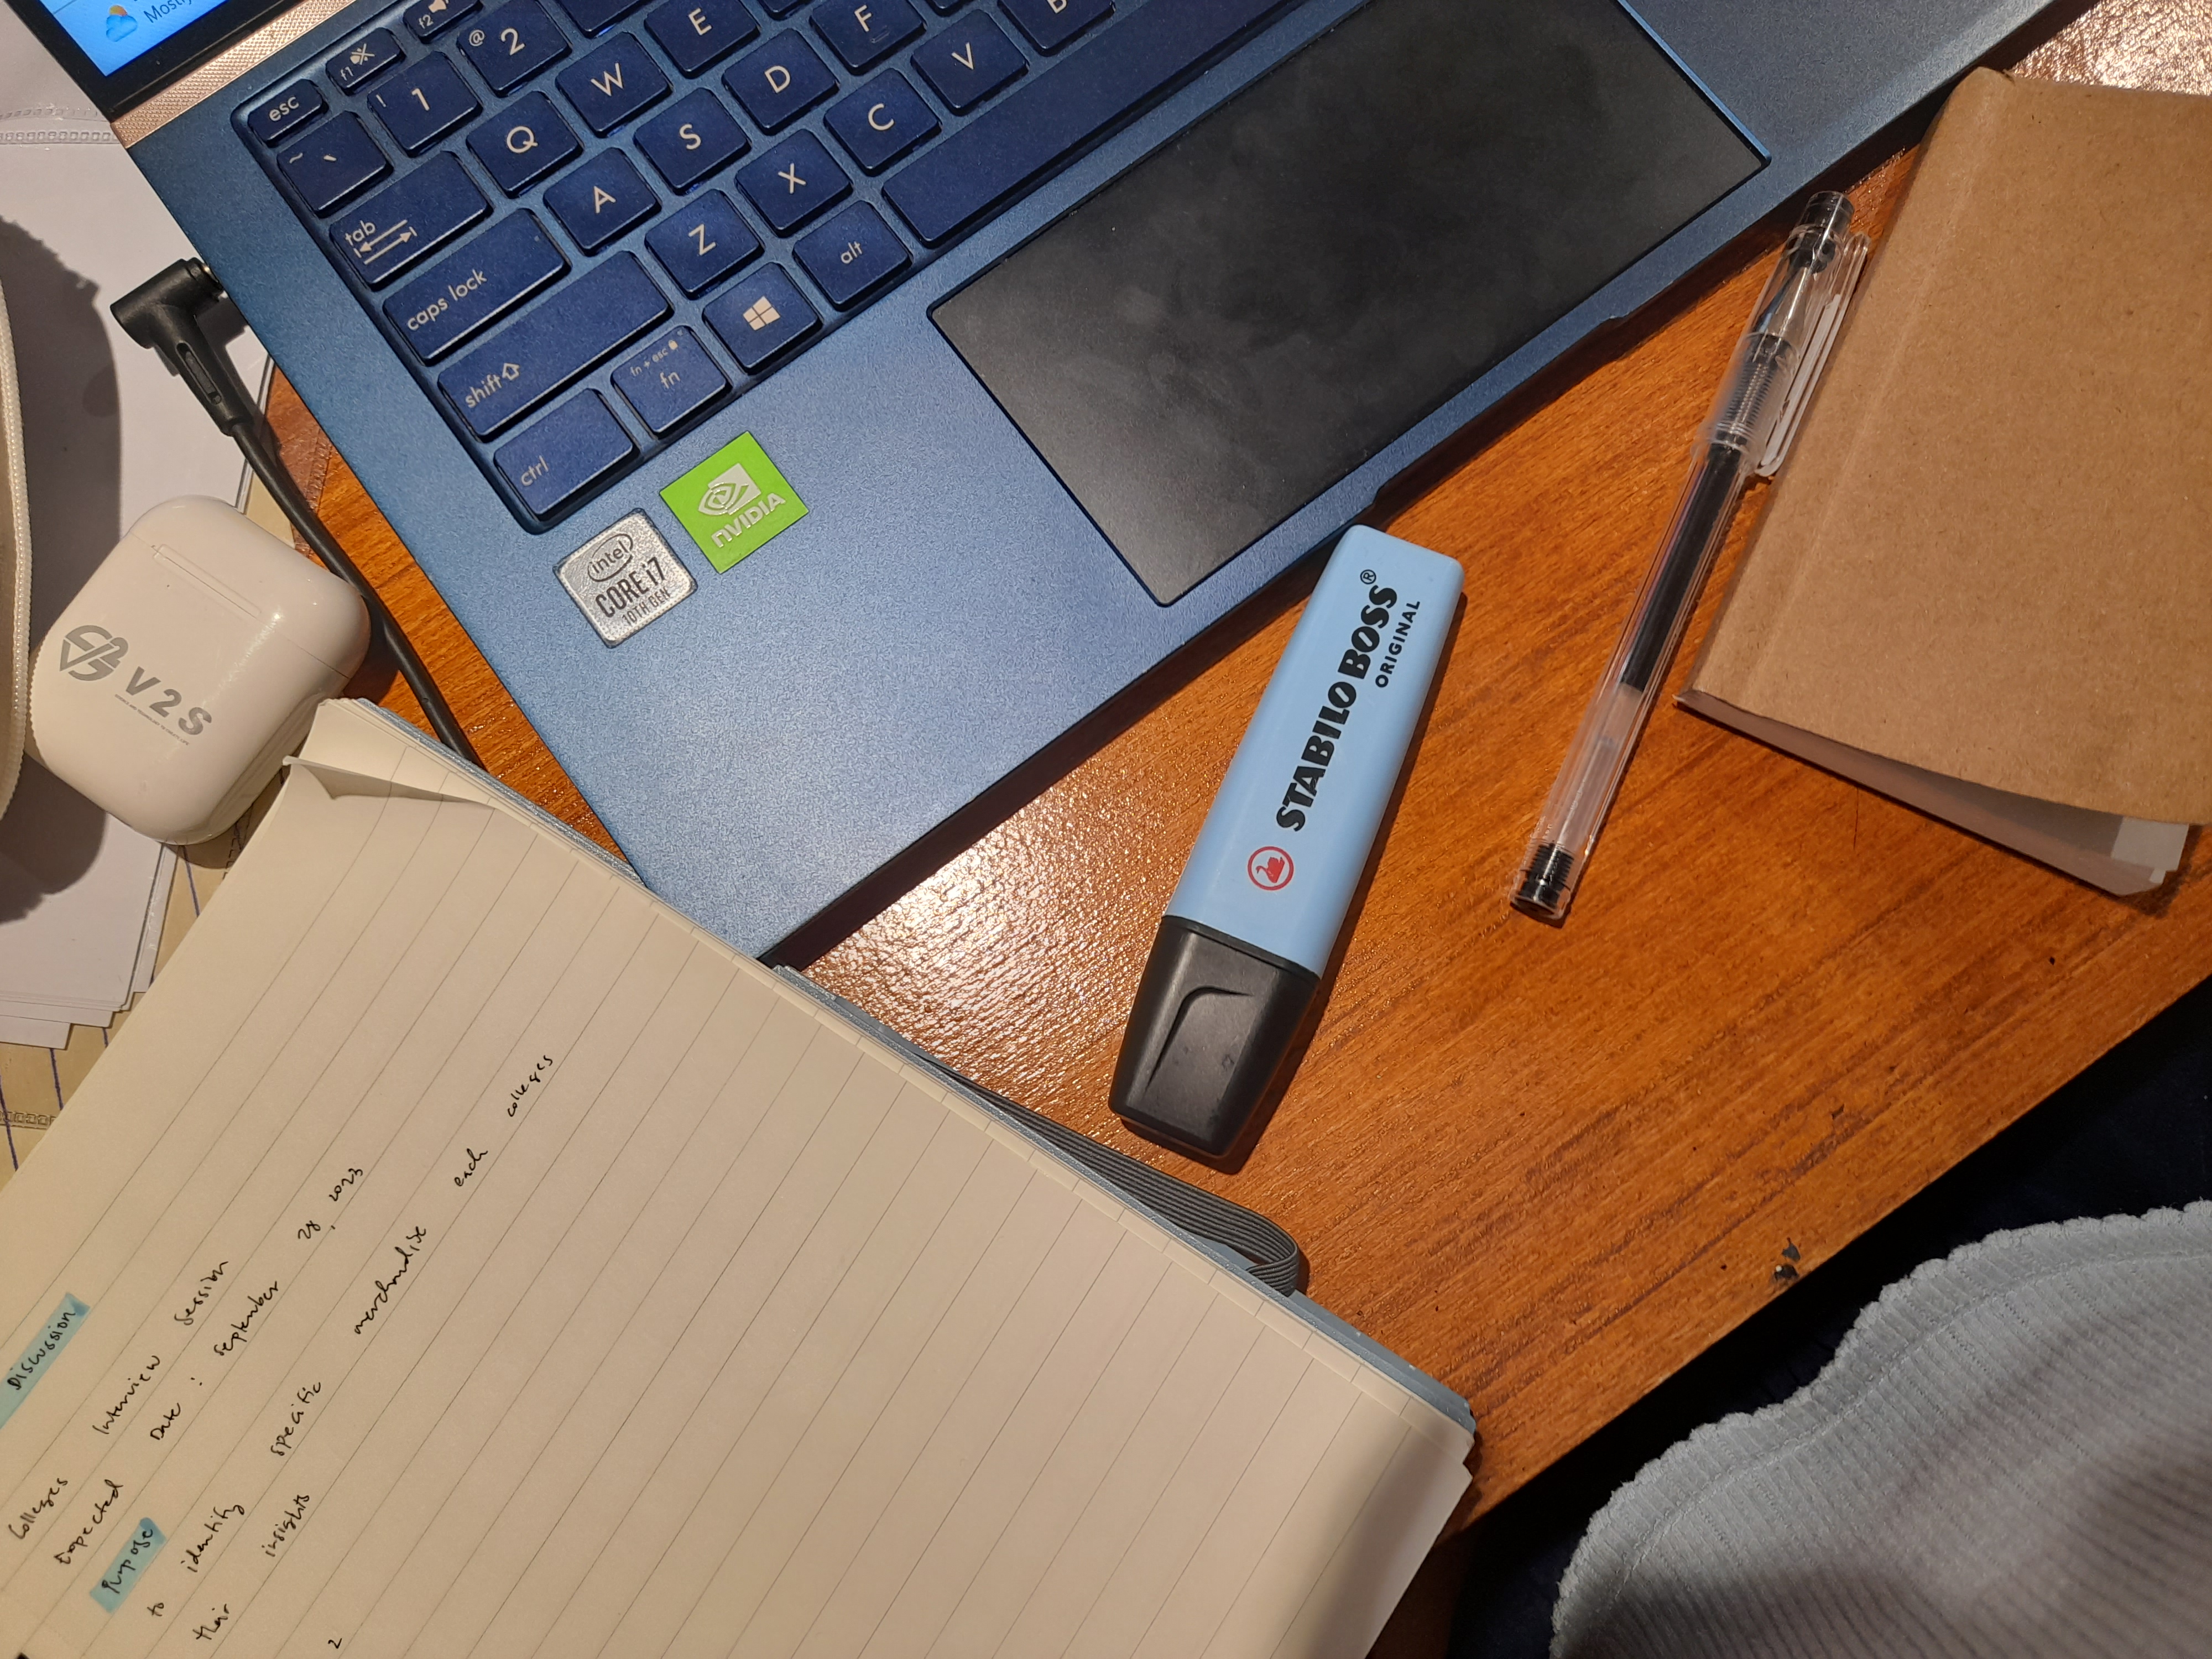 Mostly
esc
f1
f2
~ `
! 1
@ 2
tab
Q W E
caps lock
A S D F
shift
Z X C V B
ctrl
fn + esc
fn
alt
intel
CORE i7
10TH GEN
NVIDIA
V2S
STABILO BOSS®
ORIGINAL
Discussion
Colleges Interview Session
Expected Date : September 28, 2023
Purpose
to identify specific merchandise each colleges
their insights
2